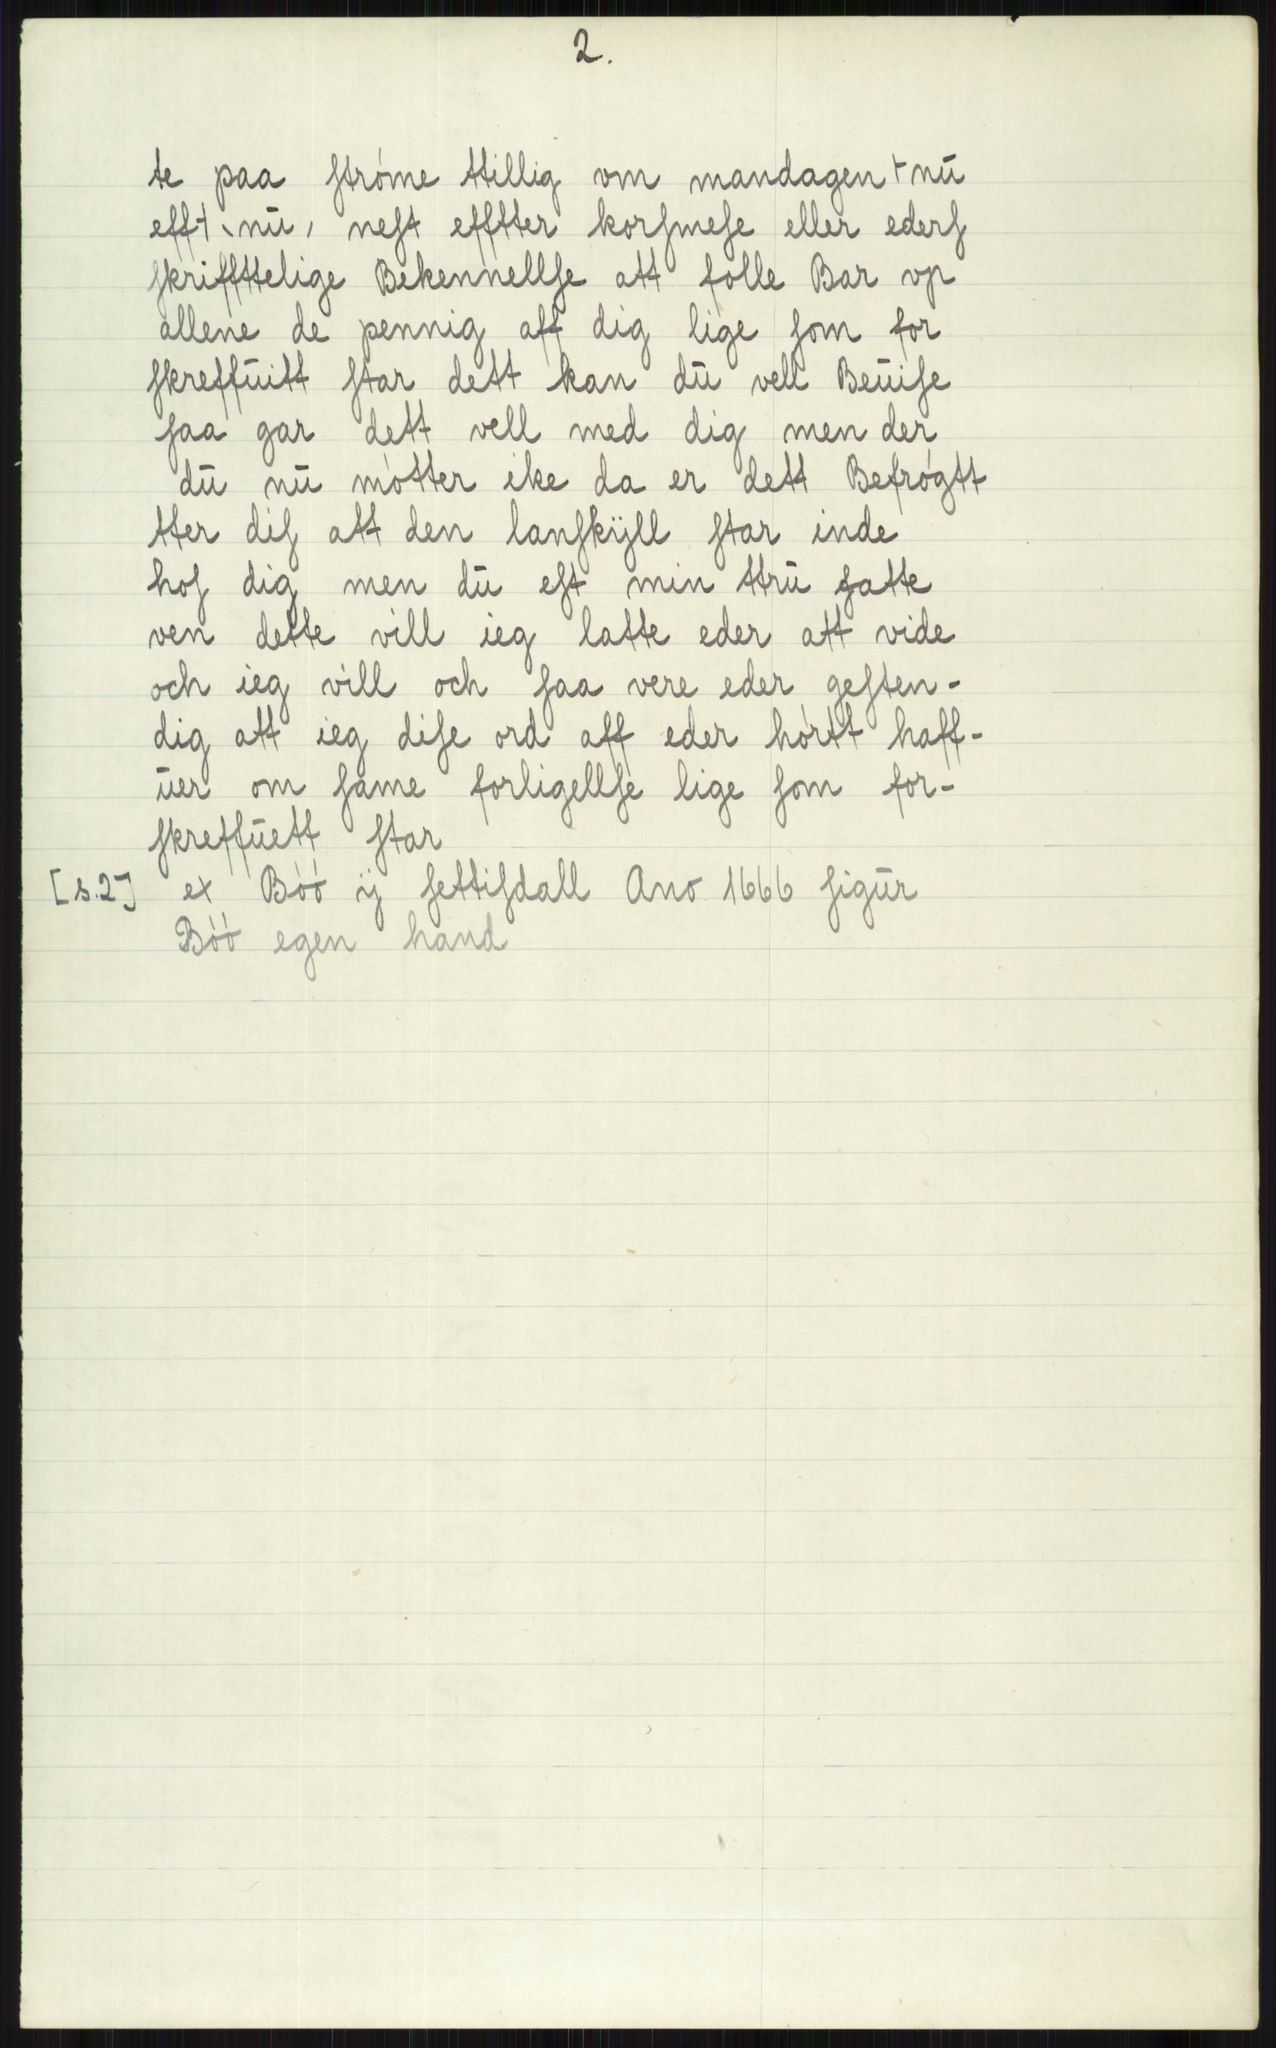 2.
te paa ſtróme ttillig vm mandagen + nū
efft \ nū / neſt efftter korſmeſe eller ederſ
ſkriffttelige Bekennellſe att folle Bar vp
allene de pennig aff dig lige ſom for
ſkreffūitt ſtar dett kan dū vell Beūiſe
ſaa gar dett vell med dig men der
dū nū mótter ike da er dett Befrógtt
tter diſ att den lanſkÿll ſtar inde
hoſ dig men dū eſt min ttrū fatte
ven dette vill ieg latte eder att vide
och ieg vill och ſaa vere eder geſten-
dig att ieg diſe ord aff eder hórtt haff-
ūer om ſame forligellſe lige ſom for-
ſkreffūett ſtar
[s.2] ex Bóó ÿ ſettiſdall Ano 1666 ſigūr
Bóó egen hand